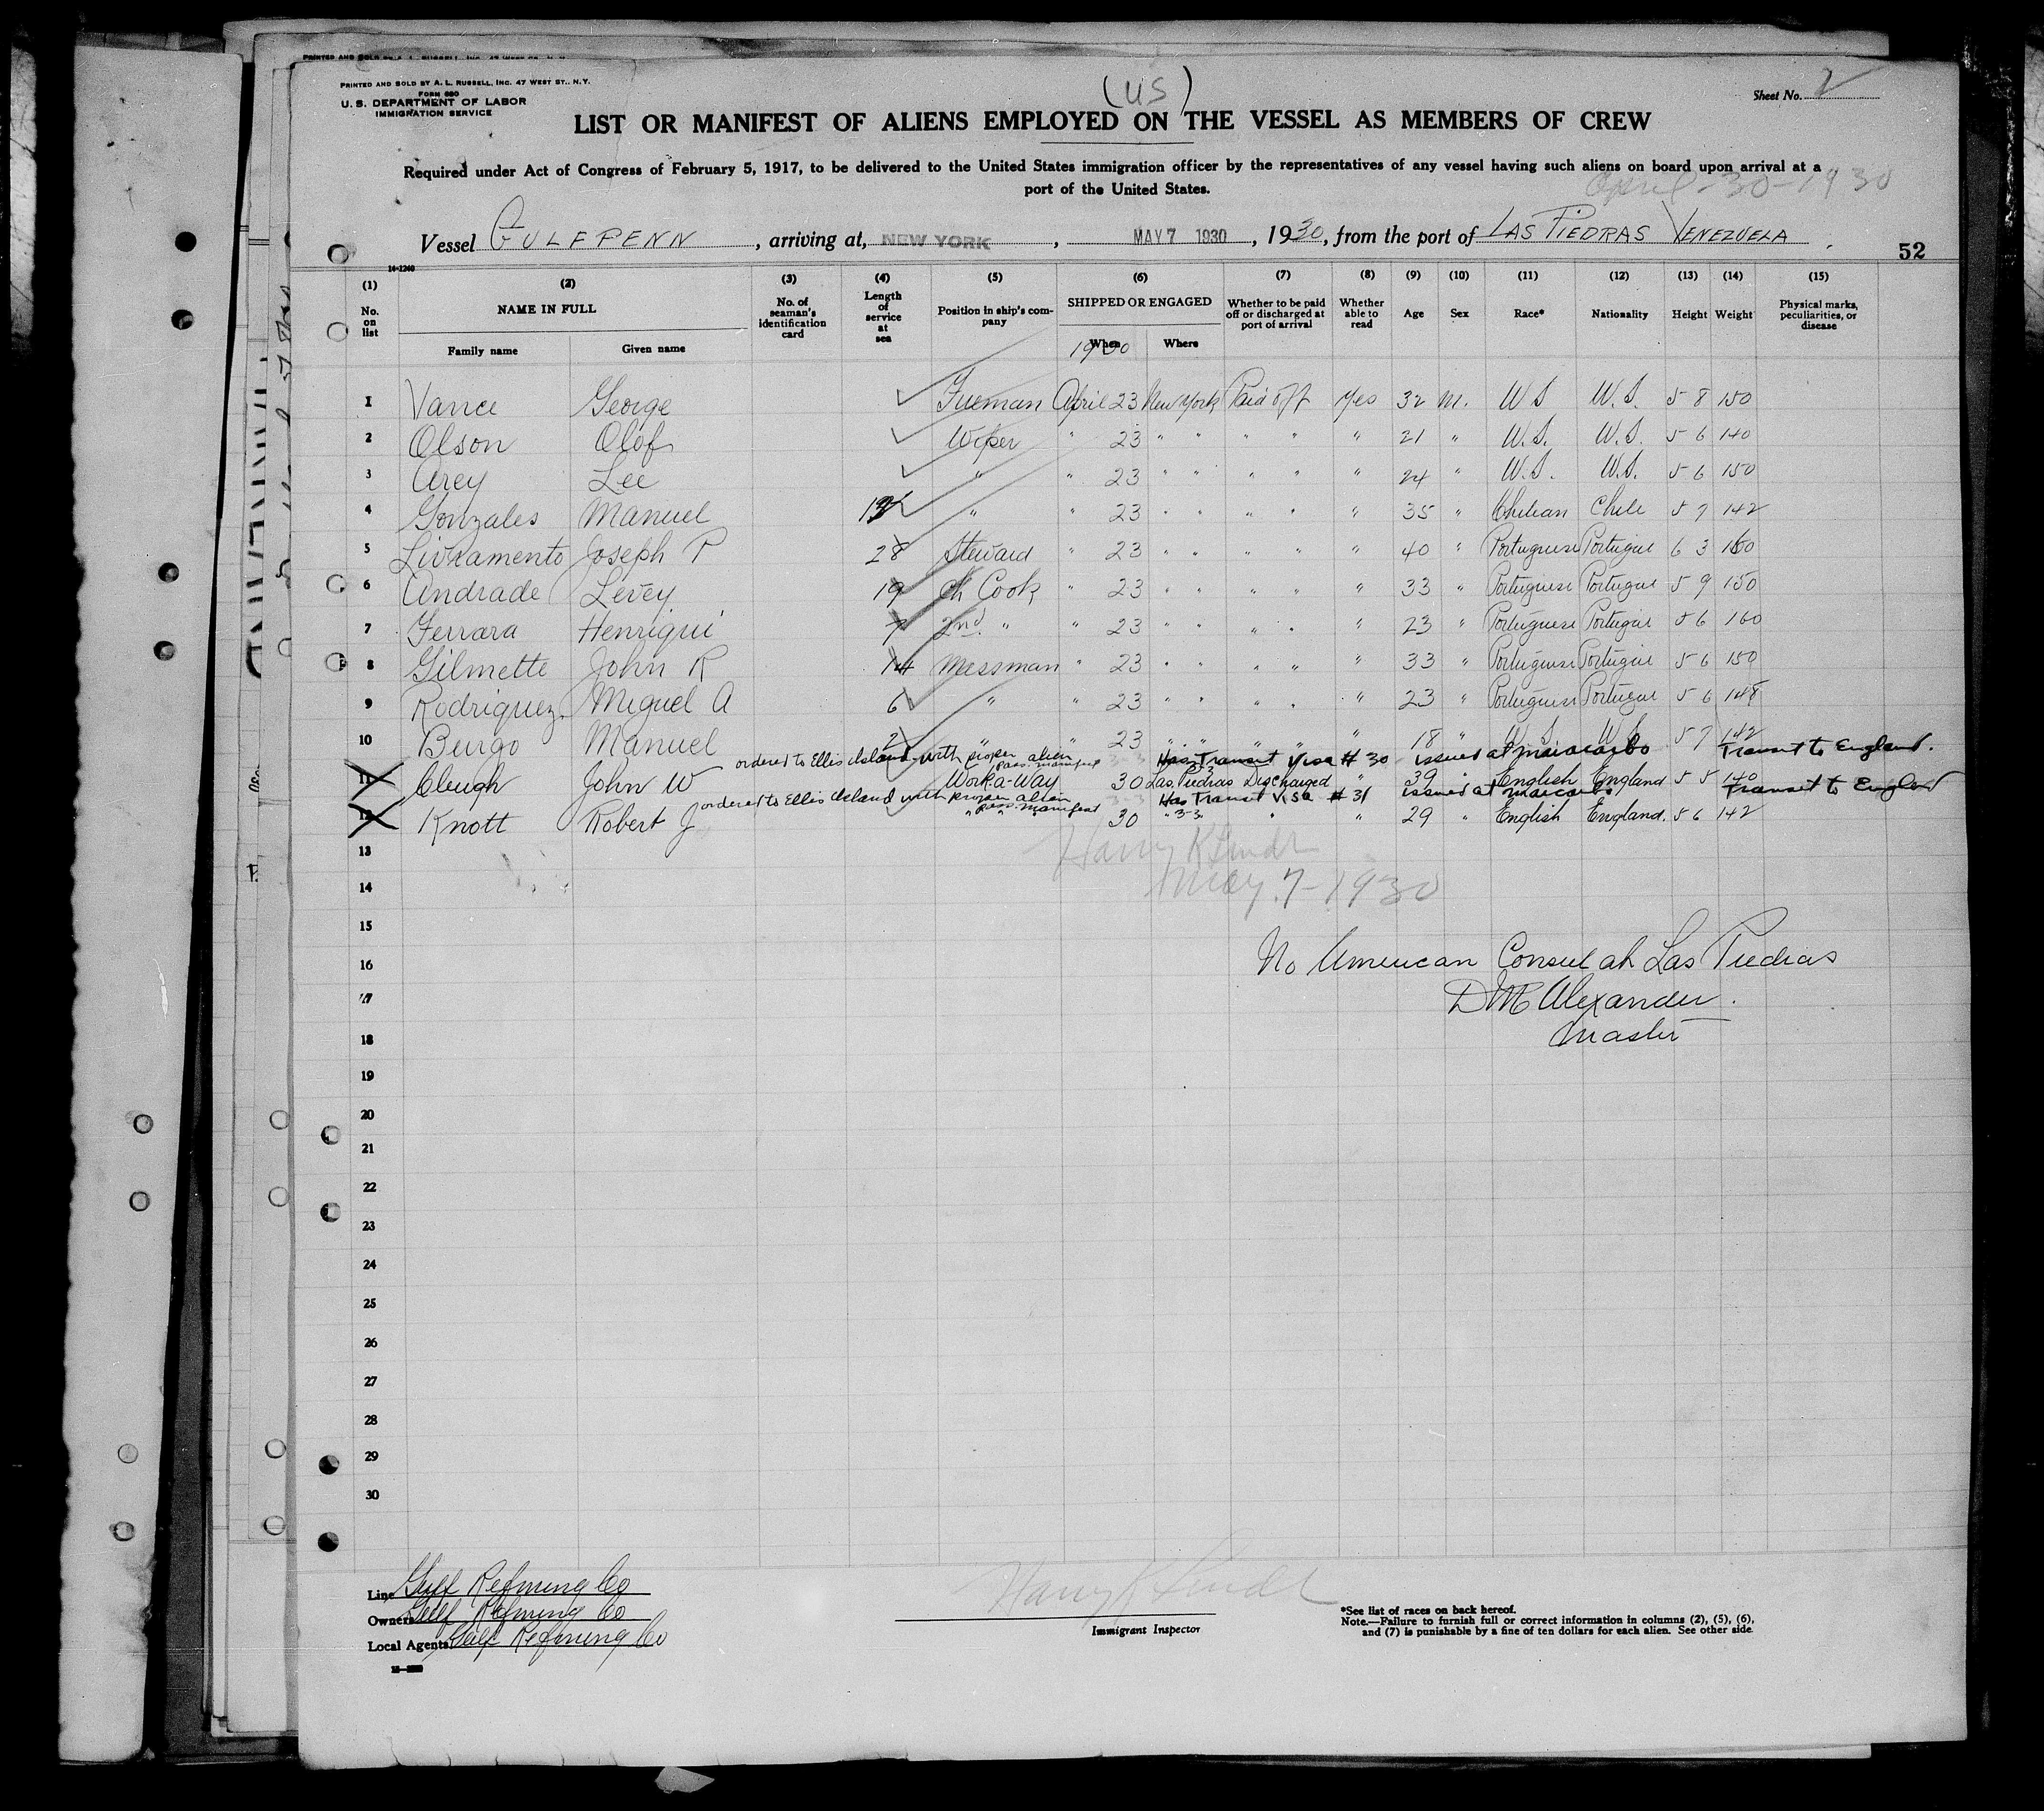 PRINTED AND SOLD BY A. L. RUSSELL, INC. 47 WEST ST., N.Y.
FORM 680
U.S. DEPARTMENT OF LABOR
IMMIGRATION SERVICE
(US)
Sheet No. 2
LIST OR MANIFEST OF ALIENS EMPLOYED ON THE VESSEL AS MEMBERS OF CREW
Required under Act of Congress of February 5, 1917, to be delivered to the United States immigration officer by the representatives of any vessel having such aliens on board upon arrival at a
port of the United States.
April-30-1930
Vessel GULFPENN, arriving at, NEW YORK, MAY 7 1930, 1930, from the port of LAS PIEDRAS VENEZUELA.
52
14-1240
(1) (2) (3) (4) (5) (6) (7) (8) (9) (10) (11) (12) (13) (14) (15)
No. on list NAME IN FULL No. of seaman's identification card Length of service at sea Position in ship's company SHIPPED OR ENGAGED Whether to be paid off or discharged at port of arrival Whether able to read Age Sex Race* Nationality Height Weight Physical marks, peculiarities, or disease
Family name Given name When Where
1930
1 Vance George Fireman April 23 New York Paid off Yes 32 M. U S U.S. 5 8 150
2 Olson Olof Wiper " 23 " " " " " 21 " U.S. U.S. 5 6 140
3 Arey Lee " " 23 " " " " " 24 " U.S. U.S. 5 6 150
4 Gonzales Manuel " " 23 " " " " " 35 " Chilean Chile 5 7 142
5 Livramento Joseph P 28 Steward " 23 " " " " " 40 " Portuguese Portugal 6 3 160
6 Andrade Levey 19 Ch Cook " 23 " " " " " 33 " Portuguese Portugal 5 9 150
7 Ferrara Henriqui 7 2nd. " " 23 " " " " " 23 " Portuguese Portugal 5 6 160
8 Gilmette John R 14 Messman " 23 " " " " " 33 " Portuguese Portugal 5 6 150
9 Rodriguez Miguel A 6 " " 23 " " " " " 23 " Portuguese Portugal 5 6 148
10 Burgo Manuel 2 " " 23 " " " " " 18 " U.S. U.S. 5 7 142
ordered to Ellis Island with proper alien pass. manifest Has Transit Visa # 30 issued at Maracaibo Transit to England.
11 Clough John W Work-a-Way 30 Las Piedras Discharged " 39 " English England 5 5 140
ordered to Ellis Island with proper alien pass. manifest Has Transit Visa # 31 issued at Maracaibo Transit to England
12 Knott Robert J " " " 30 " " " 29 " English England. 5 6 142
13
14
May 7-1930
15
16 No American Consul at Las Piedras
17 D M Alexander.
18 Master
19
20
21
22
23
24
25
26
27
28
29
30
Line Gulf Refining Co
Owners Gulf Refining Co
Local Agents Gulf Refining Co
Immigrant Inspector
*See list of races on back hereof.
Note.—Failure to furnish full or correct information in columns (2), (5), (6),
and (7) is punishable by a fine of ten dollars for each alien. See other side.